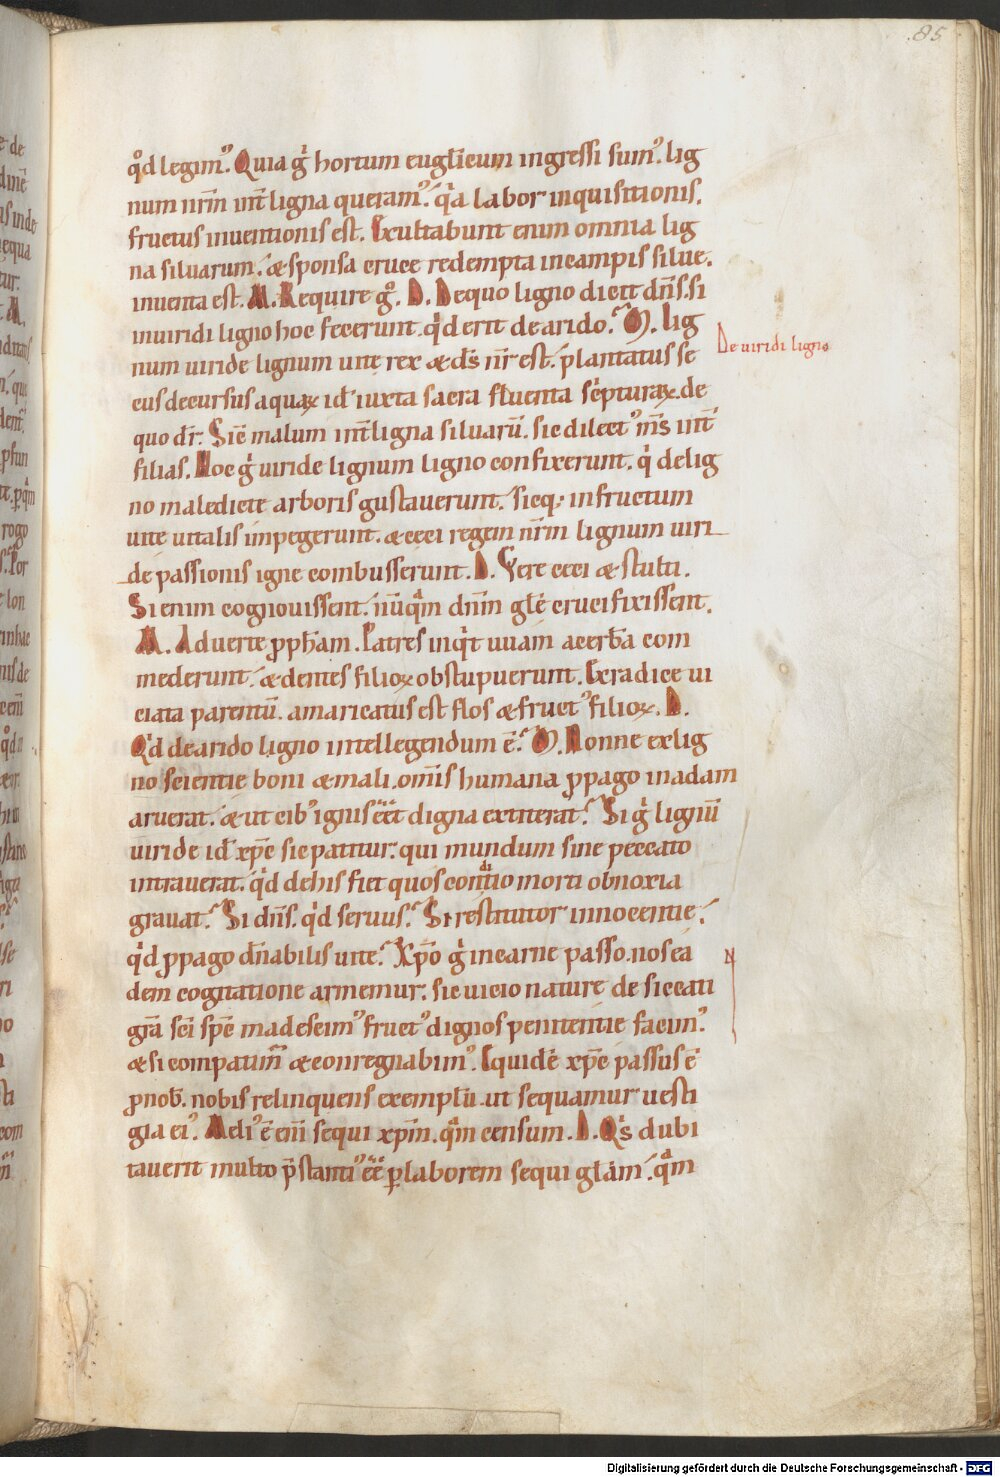 85
qd̊ legim᷒. Quia g̊ hortum eugl̄icum ingressi sum᷒. lig
num nr̄m int̄ ligna queram᷒. q̇a labor inquisitionis,
fructus inuentionis est. Exultabunt enim omnia lig
na siluarum. & sponsa cruce redempta in campis silue.
inuenta est. M. Require g̊. D. De quo ligno dicit dn̄s. si
in uiridi ligno hoc fecerunt. q̇d erit de arido. M. Lig
num uiride lignum uitę rex & ds̄ nr̄ est. plantatus se
De uiridi ligno
cus decursus aquaꝝ id ÷ iuxta sacra fluenta sc̄pturaꝝ. de
quo dr̄. Sic̄ malum int̄ ligna siluaꝝ. sic dilect᷒ ms̄ int̄
filias. Hoc g̊ uiride lignum ligno confixerunt. q̇ de lig
no maledictę arboris gustauerunt. sicq; in fructum
uitę uitalis impegerunt. & ceci regem nr̄m lignum uiri
de passionis igne combusserunt. D. Vere ceci & stulti.
Si enim cognouissent. nūq̄m dn̄m glē crucifixissent.
M. Aduerte ꝓph̄am. Patres inq̇t uuam acerbā com
mederunt. & dentes filioꝝ obstupuerunt. Ex radice ui
ciata parentū. amaricatus est flos & fruct᷒ filioꝝ. D.
Qḋ de arido ligno intellegendum ē. M. Nonne ex lig
no scientie boni & mali. omīs humana ꝓpago in adam
aruerat. & ut cib᷒ ignis eēt digna extiterat. Si g̊ lignū
uiride id ÷ xp̄c sic patitur. qui mundum sine peccato
intrauerat. q̇d de his fiet quos conditio morti obnoxia
grauat. Si dn̄s. q̇d seruus. Si restitutor innocentie.
q̇d ꝓpago dn̄abilis uitę. Xp̄o g̊ in carne passo. nos ea
dem cogitatione armemur. sic uicio naturę de siccati
grā sc̄i sp̄c madescim᷒ fruct᷒ dignos penitentie facim᷒.
& si compatim᷒ & conregnabim᷒. Equidē xp̄c passus ē
ꝓ nob̄. nobis relinquens exemplū. ut sequamur uesti
gia ei᷒. Meli᷒ ē eni̅ sequi xp̄m. q̄m censum. D. Qs̊ dubi
tauerit multo p̄stanti᷒ eē᷒ ꝑ laborem sequi glām. q̄m
Digitalisierung gefördert durch die Deutsche Forschungsgemeinschaft - DFG